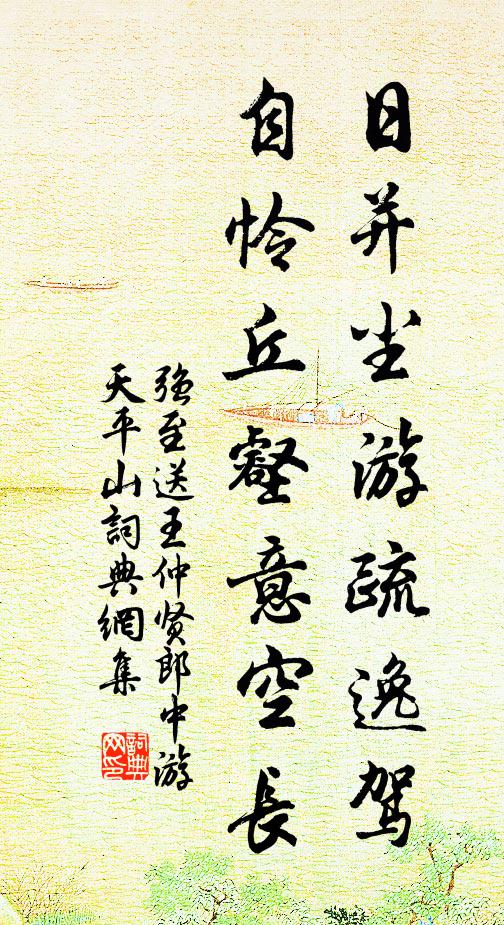 日并尘游疏逸驾
自怜丘壑意空長
强至送王仲贤郎中游
天平山詞典網集
詞典
网印